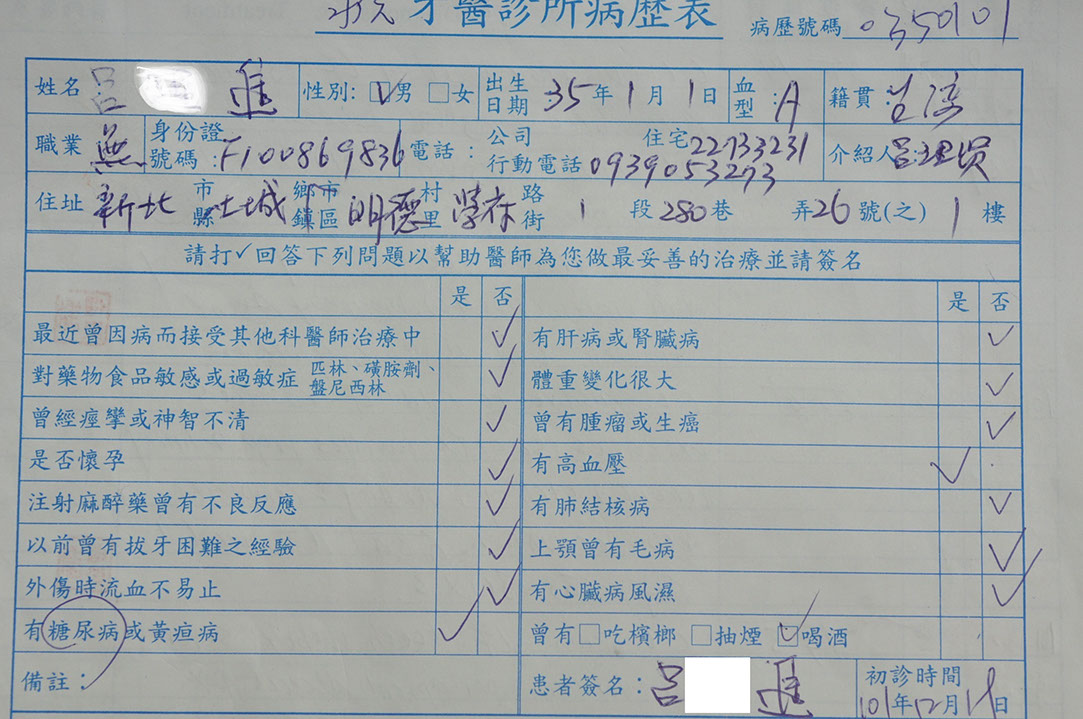 牙醫診所病歷表 病歷號碼 0350101
姓名 呂 進 性別: ☑男 □女 出生日期 35年1月1日 血型:A 籍貫:
職業 無 身份證號碼:F100869836 電話: 公司 住宅22733231
行動電話0939053273 介紹人
住址 新北 市縣 土城 鄉市鎮區 明德 村里 學府 路街 1 段 280巷 弄26號(之) 1 樓
請打✓回答下列問題以幫助醫師為您做最妥善的治療並請簽名
是 否 是 否
最近曾因病而接受其他科醫師治療中 ✓ 有肝病或腎臟病 ✓
對藥物食品敏感或過敏症 匹林、磺胺劑、盤尼西林 ✓ 體重變化很大 ✓
曾經痙攣或神智不清 ✓ 曾有腫瘤或生癌 ✓
是否懷孕 ✓ 有高血壓 ✓
注射麻醉藥曾有不良反應 ✓ 有肺結核病 ✓
以前曾有拔牙困難之經驗 ✓ 上顎曾有毛病 ✓
外傷時流血不易止 ✓ 有心臟病風濕 ✓
有糖尿病或黃疸病 ✓ 曾有□吃檳榔 □抽煙 ☑喝酒
備註: 患者簽名:呂 進 初診時間
101年12月 日